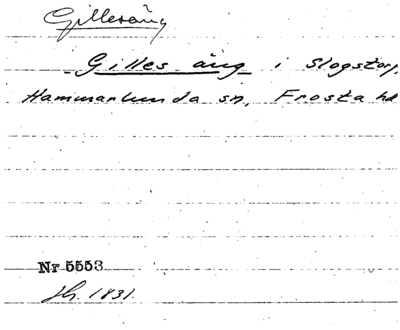 Gillesäng
Gilles äng i Slogstorp,
Hammarlunda sn, Frosta hd
Nr 5553
1831.